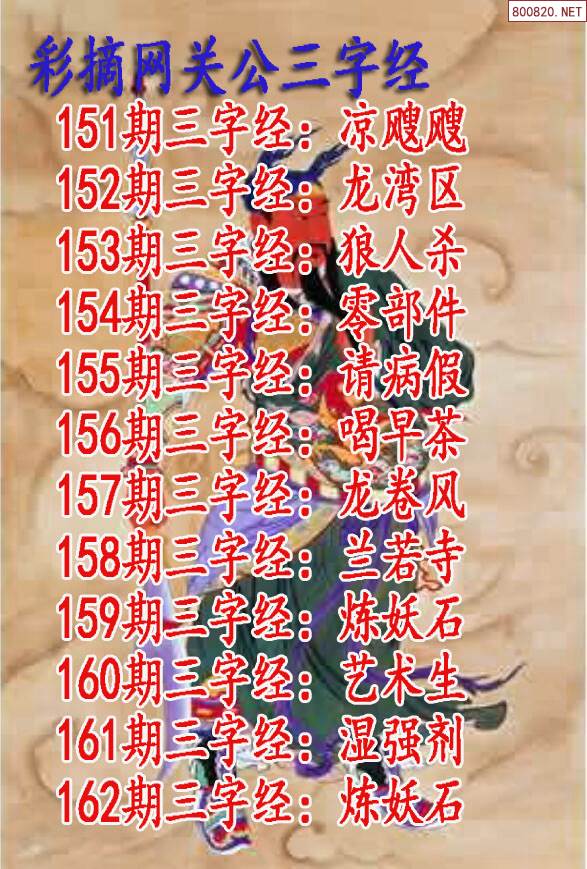 800820.NET
彩摘网关公三字经
151期三字经：凉飕飕
152期三字经：龙湾区
153期三字经：狼人杀
154期三字经：零部件
155期三字经：请病假
156期三字经：喝早茶
157期三字经：龙卷风
158期三字经：兰若寺
159期三字经：炼妖石
160期三字经：艺术生
161期三字经：湿强剂
162期三字经：炼妖石